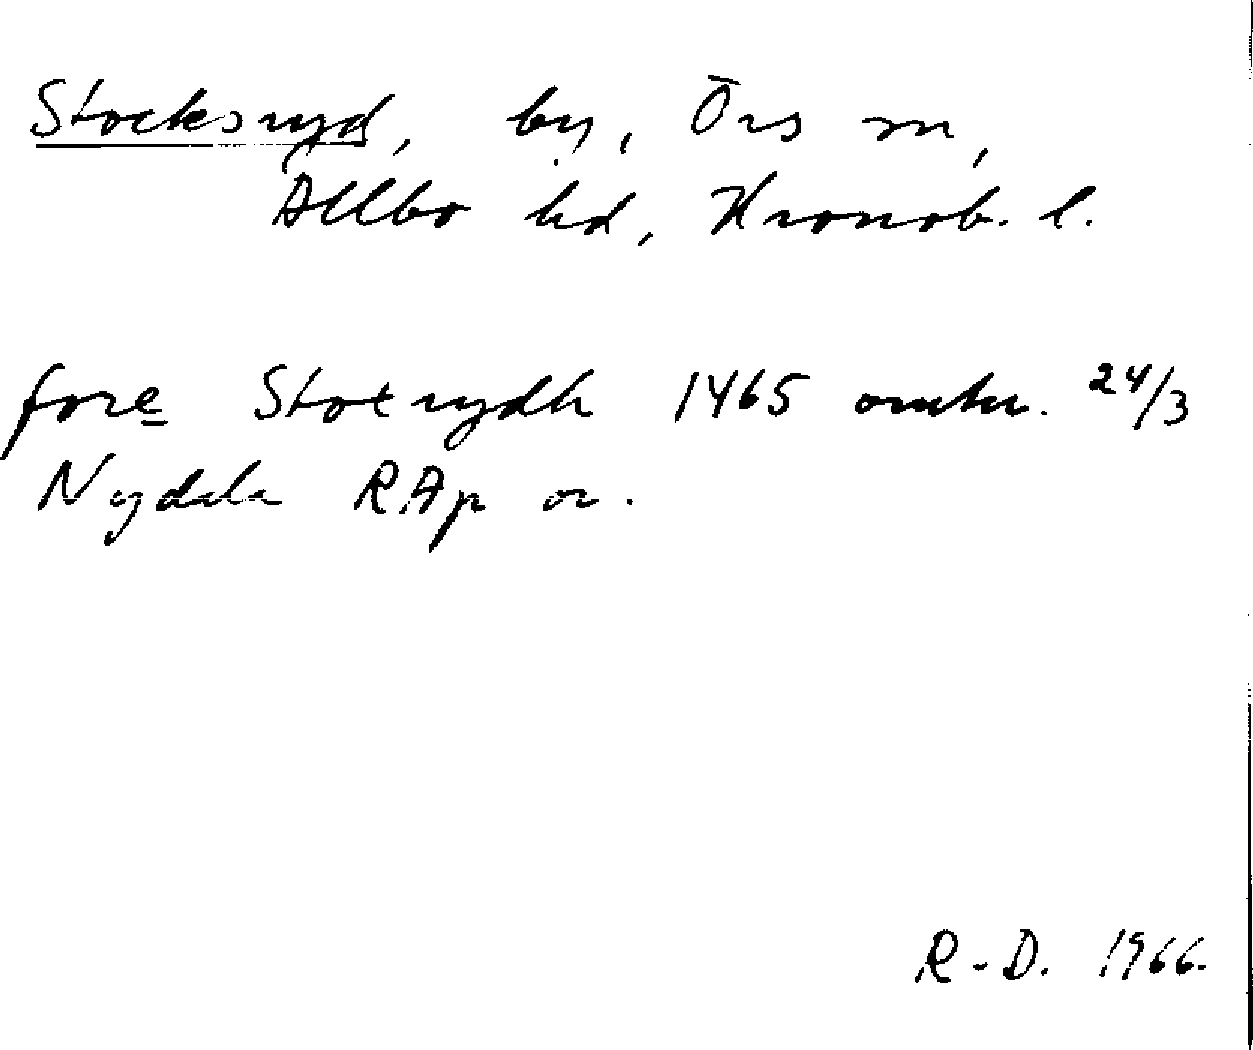 Stocksryd, by, Örs sn,
Allbo hd, Kronob. l.
fore Stoxrydh 1465 omkr. 24/3
Nydala RAp or.
R-D. 1966.